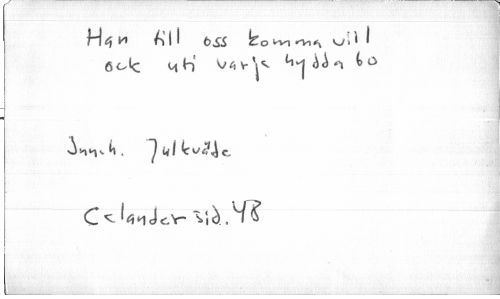 Han till oss komma vill
ock uti varje hydda bo
Innh. Julkväde
Celander sid. 48